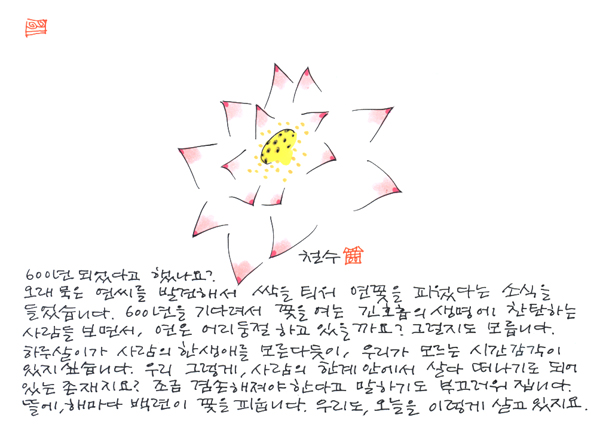 철수
600년 되었다고 했나요?
오래 묵은 연씨를 발견해서 싹을 틔워 연꽃을 피웠다는 소식을
들었습니다. 600년을 기다려서 꽃을 여는 긴 호흡의 생명에 찬탄하는
사람들 보면서, 연은 어리둥절 하고 있을까요? 그럴지도 모릅니다.
하루살이가 사람의 한생애를 모른다듯이, 우리가 모르는 시간감각이
있지 싶습니다. 우리 그렇게, 사람의 한계 안에서 살다 떠나기로 되어
있는 존재지요? 조금 겸손해져야 한다고 말하기도 부끄러워 집니다.
뜰에, 해마다 백련이 꽃을 피웁니다. 우리도, 오늘을 이렇게 살고 있지요.